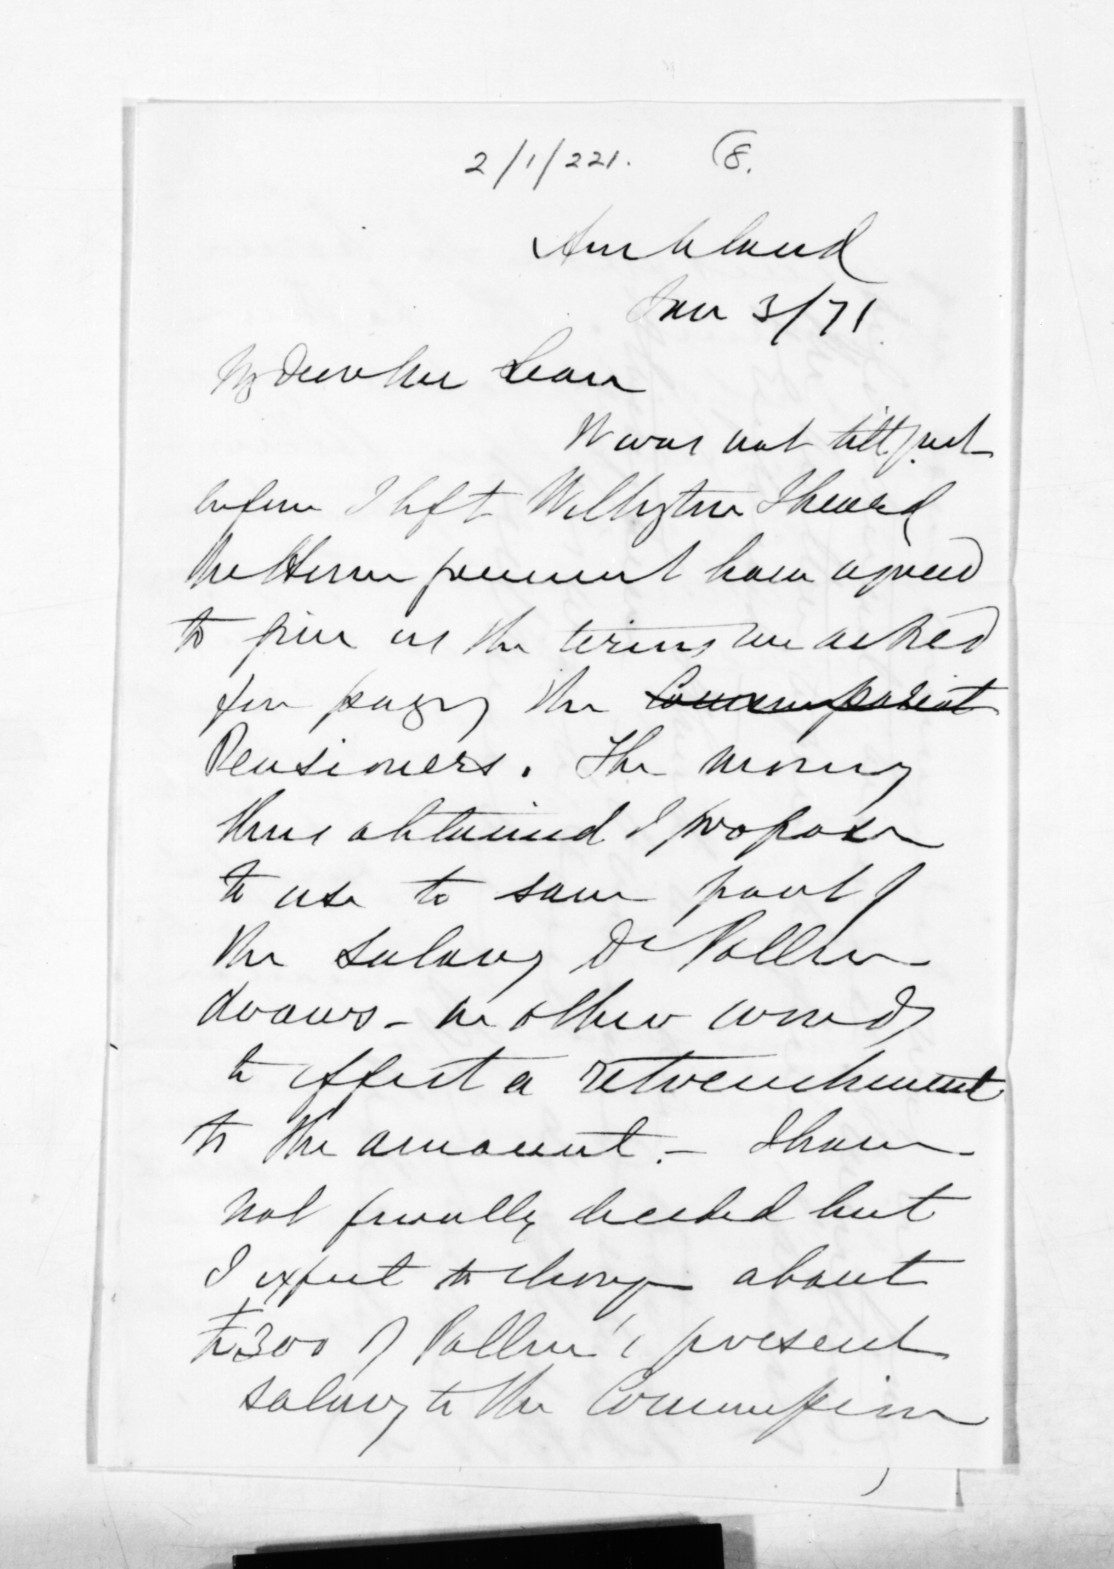 2/1/221. (8.
Auckland
Jan 3/71
My dear McLean
It was not till just
before I left Wellington I heard
the Home government have agreed
to give us the terms we asked
for paying the
Pensioners. The money
thus obtained I propose
to use to save part of
the salary Dr Pollen
draws - in other words
to effect a retrenchment
to the amount. - I have
not finally decided but
I expect to charge about
£300 of Pollen's present
salary to the Commission